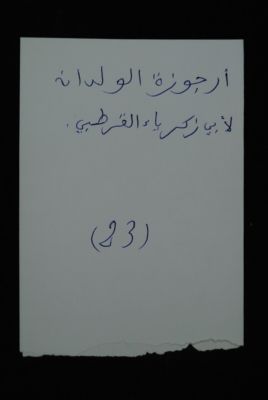 أرجوزة الولدان
لأبي زكرياء القرطبي.
(23)